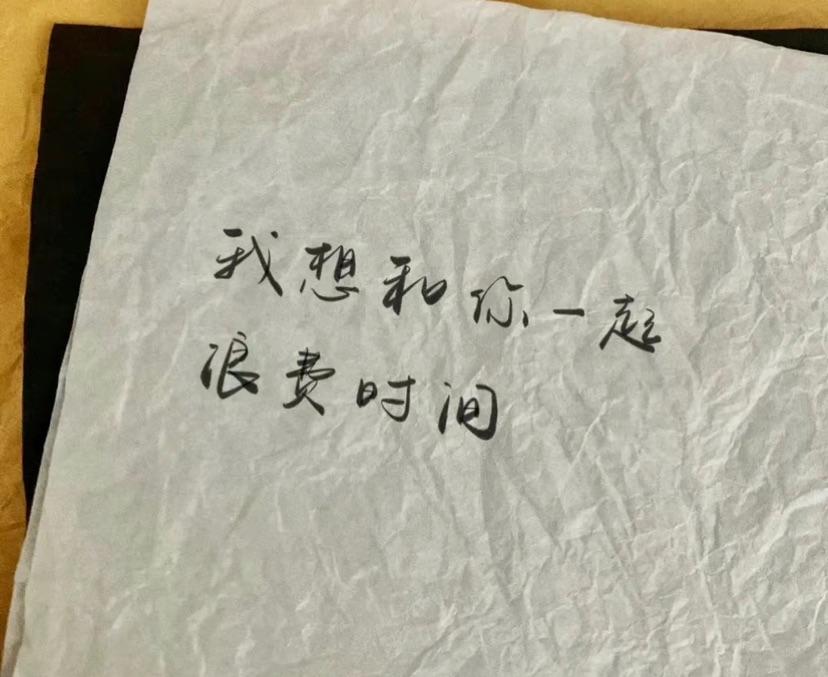 我想和你一起
浪费时间